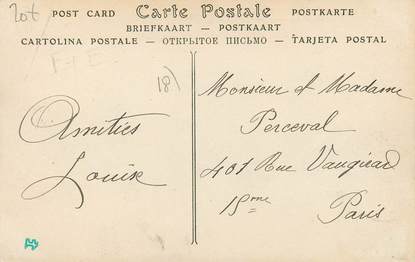 20t
POST CARD Carte Postale POSTKARTE
BRIEFKAART — POSTKAART
CARTOLINA POSTALE — ОТКРЫТОЕ ПИСЬМО — TARJETA POSTAL
18)
Amitiés
Louise
Monsieur et Madame
Perceval
401 Rue Vaugirard
15ème
Paris